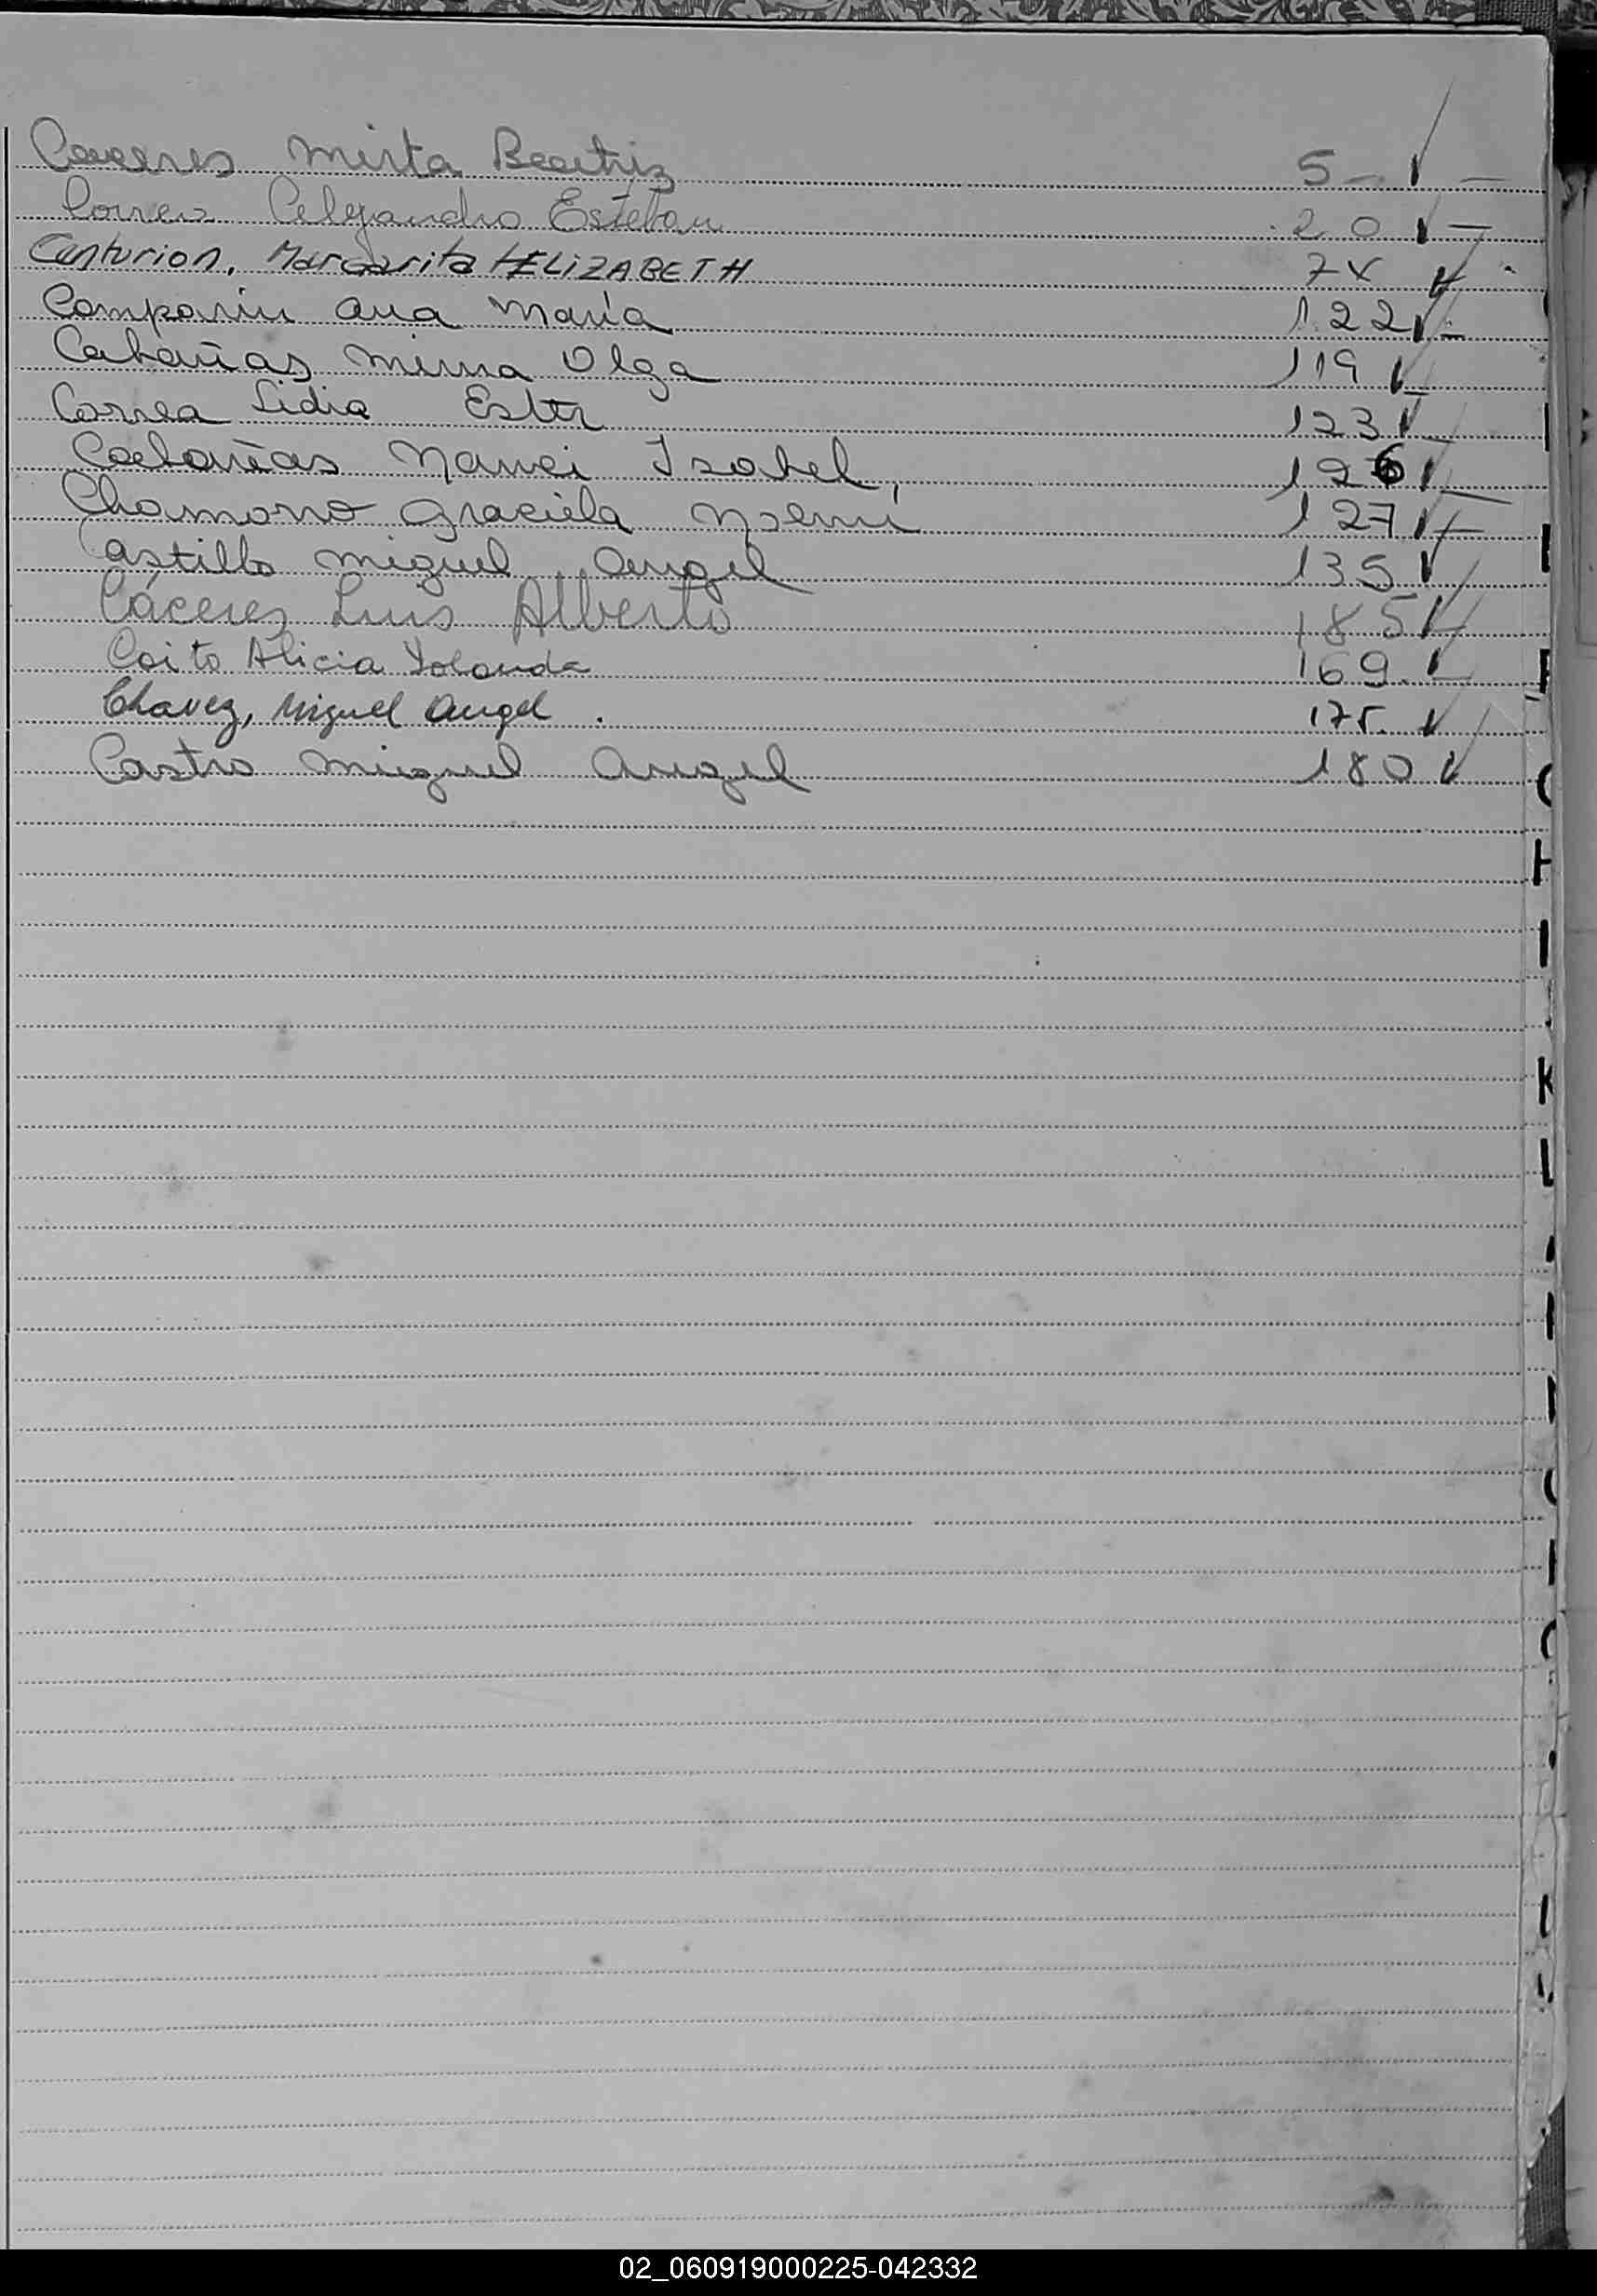 Caceres Mirta Beatriz 5 - ✓ -
Correa Alejandro Esteban 20 ✓ -
Centurion, Margarita HELIZABETH 74 ✓
Comparin Ana Maria 122 ✓ -
Cabañas Mirna Olga 119 ✓
Correa Lidia Ester 123 ✓
Cabañas Nanci Isabel, 126 ✓
Chamorro Graciela Noemi 127 ✓ -
Castillo Miguel Angel 135 ✓
Cáceres Luis Alberto 185 ✓
Coito Alicia Yolanda 169. ✓
Chavez, Miguel Angel . 175. ✓
Castro Miguel Angel 180 ✓
C
H
I
K
L
02_060919000225-042332